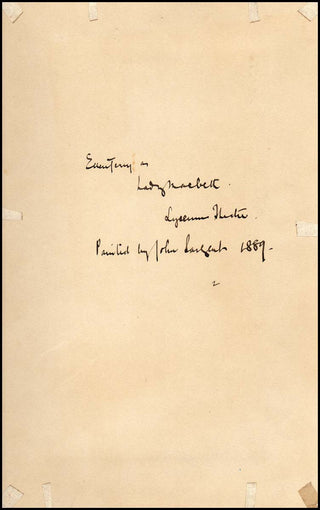 Ellen Terry as
Lady Macbeth.
Lyceum Theatre.
Painted by John Sargent 1889.